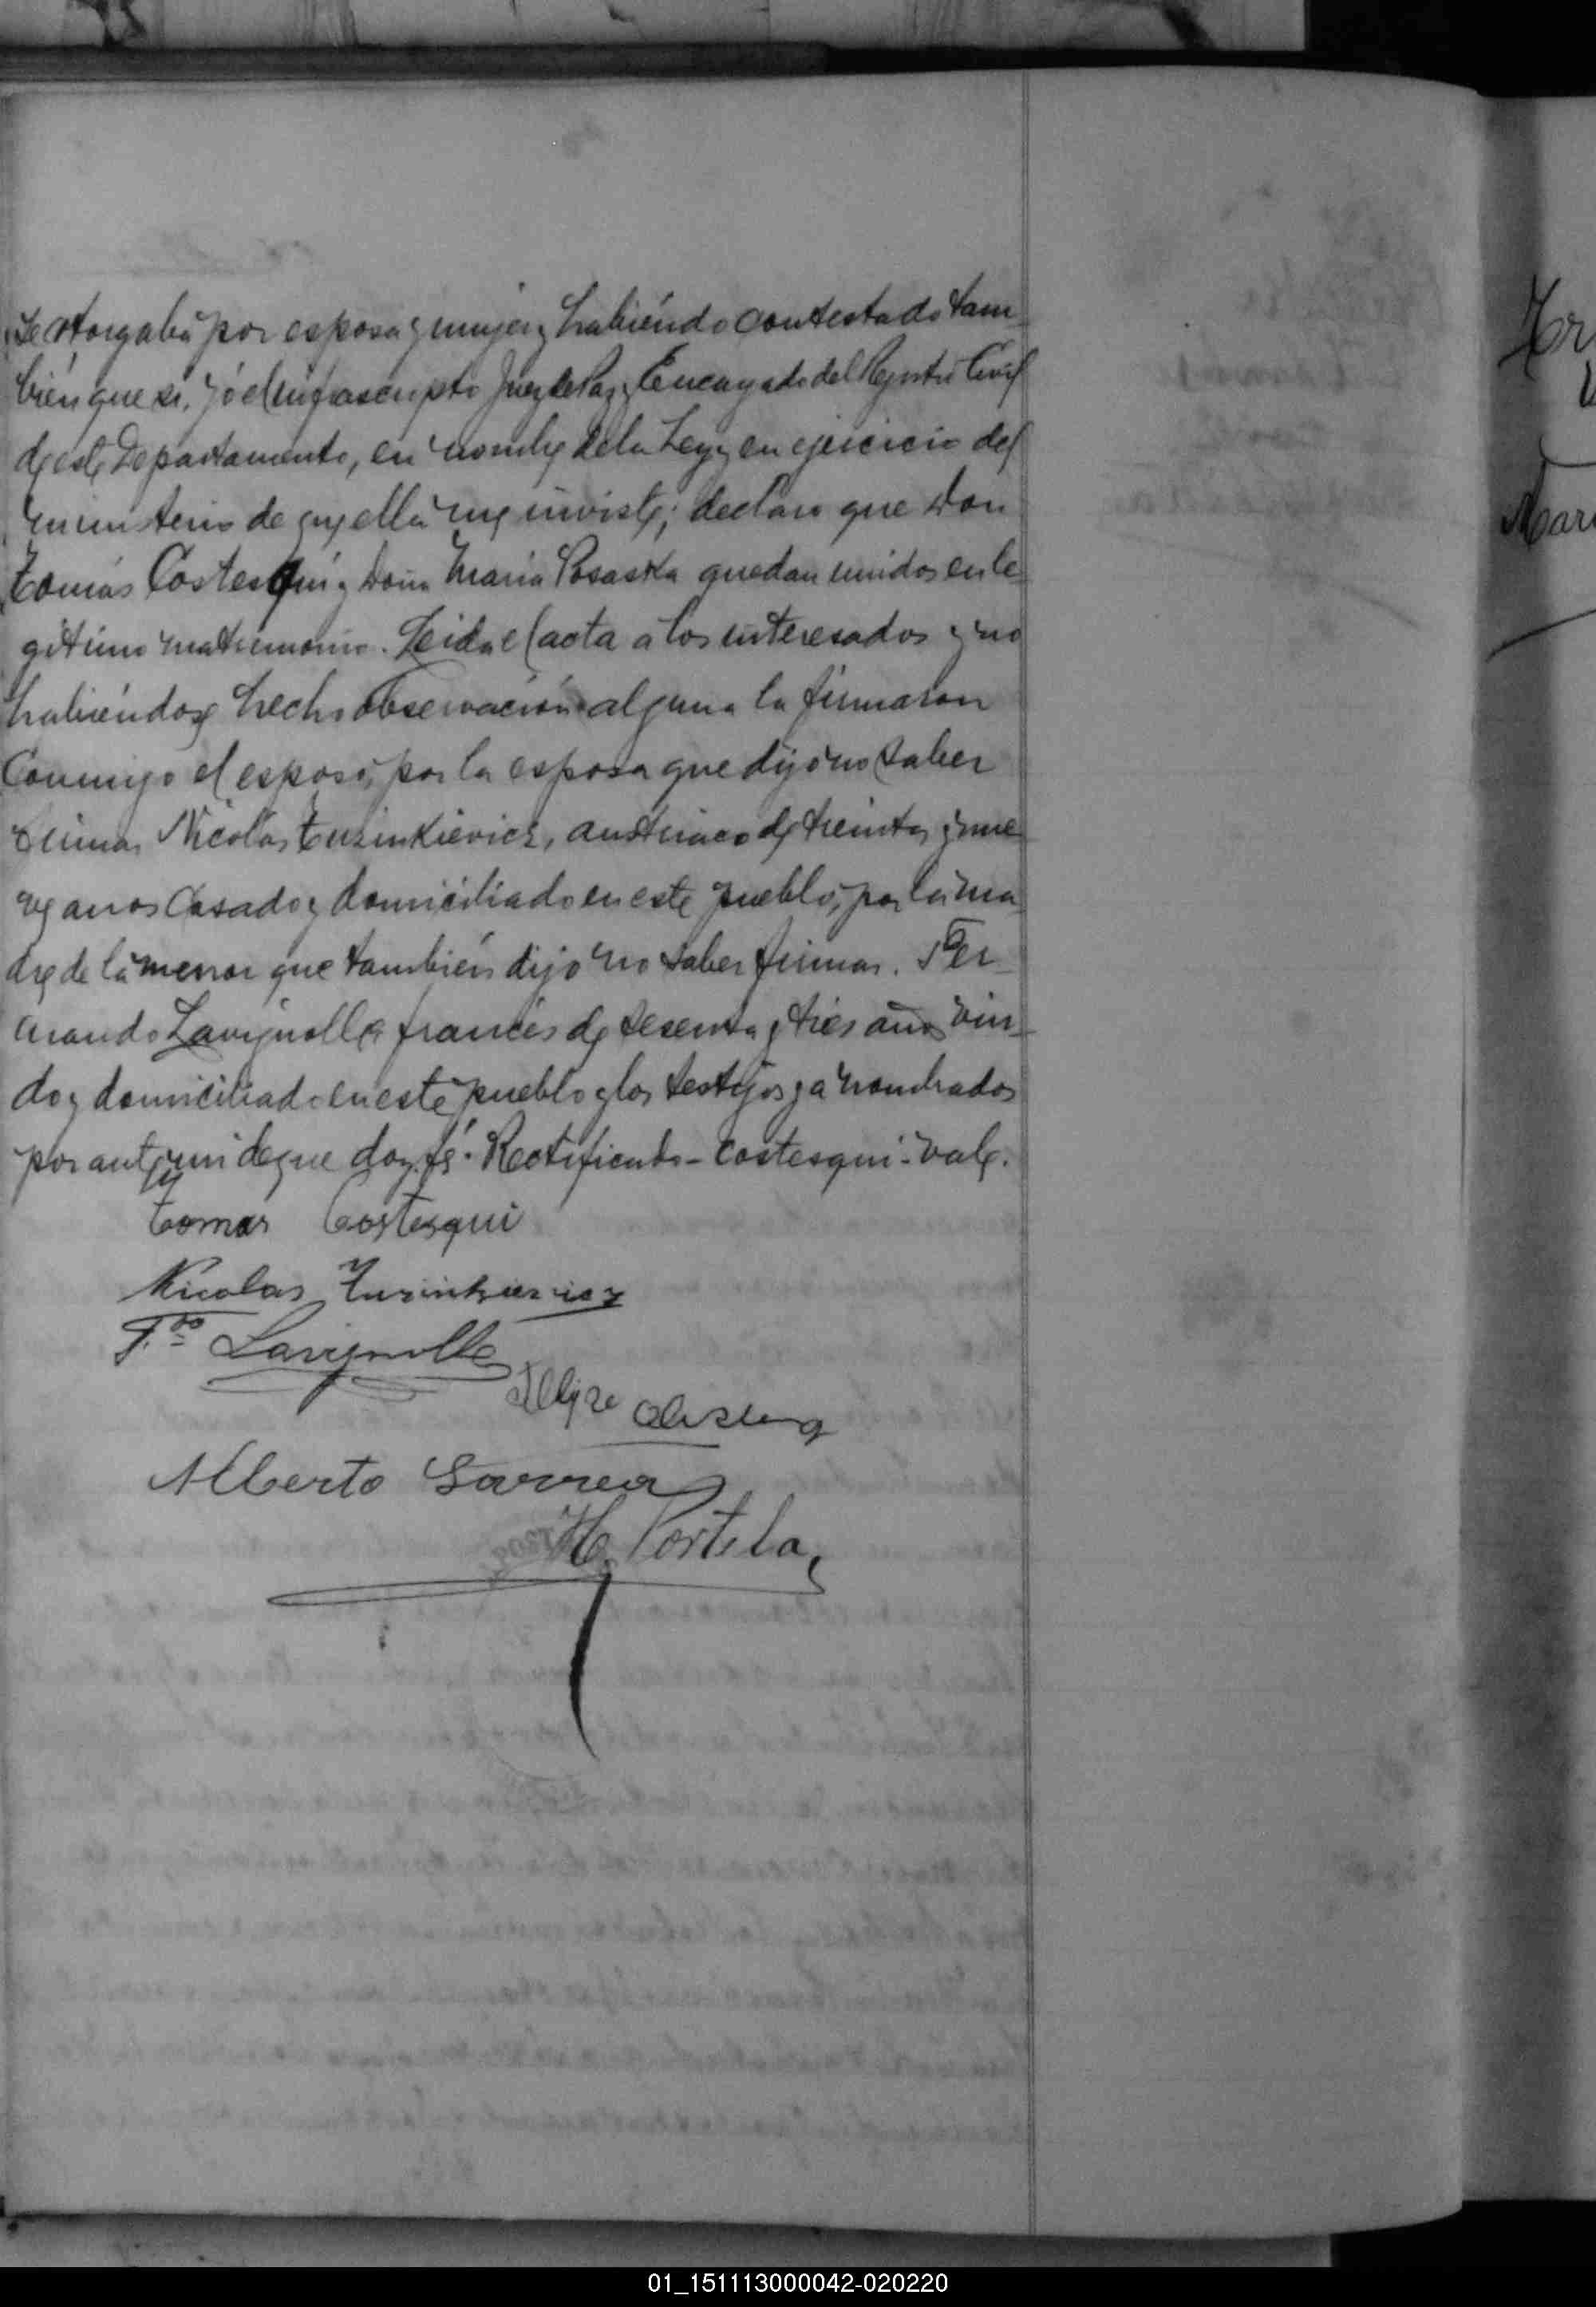 se otorgaba por esposa y mujer y habiéndo contestado tam-
bién que si. Yó el infrascripto Juez de Paz y Encargado del Registro Civil
de este Departamento, en nombre de la Ley y en ejercicio del
ministerio de que ella me inviste; declaro que Don
Tomás Costesqui y Doña Maria Posaska quedan unidos en le-
gitimo matrimonio. Leida el acta a los interesados y no
habiéndose hecho observación alguna la firmaron
Conmigo el esposo, por la esposa que dijo no saber
firmar Nicolás Tuzinkievicz, austriaco de treinta y nue-
ve años Casado y domiciliado en este pueblo, por la ma-
dre de la menor que también dijo no saber firmar. Fer-
nando Lavignolle francés de sesenta y tres años viu-
do y domiciliado en este pueblo y los testigos ya nombrados
por ante mi de que doy fé. Rectificado - Costesqui - Vale.
Tomas Costesqui
Nicolas Tuzinkiewicz
F.do Lavignolle
Alberto
H. Portela
Mari